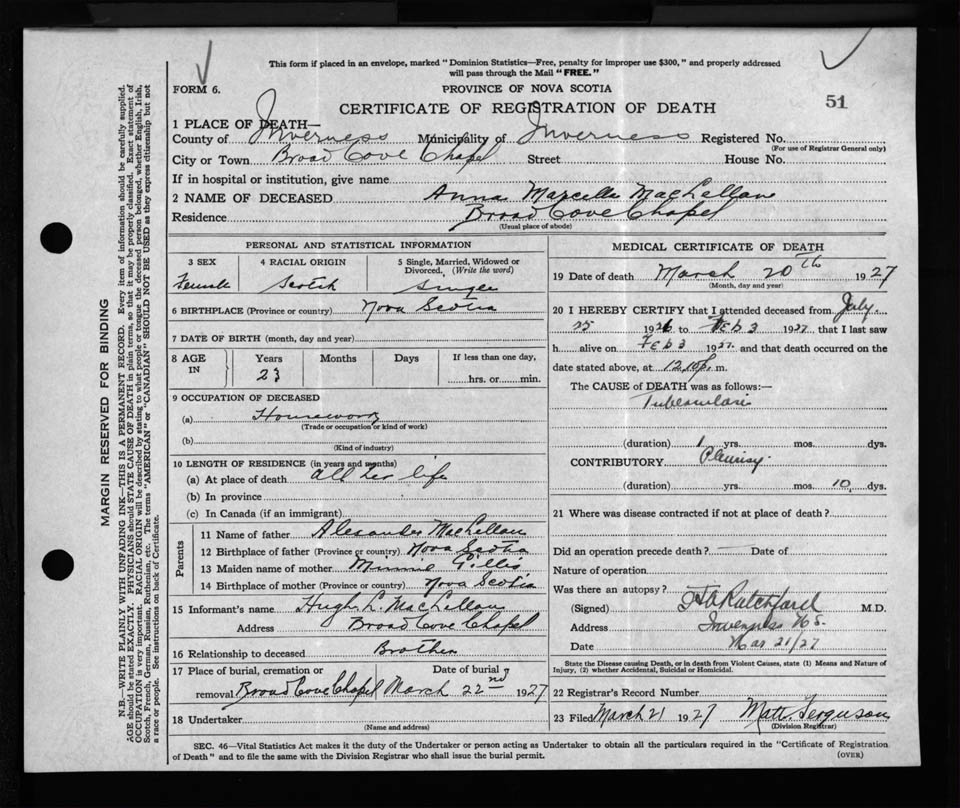 This form if placed in an envelope, marked "Dominion Statistics—Free, penalty for improper use $300," and properly addressed
will pass through the Mail "FREE."
FORM 6.
PROVINCE OF NOVA SCOTIA
CERTIFICATE OF REGISTRATION OF DEATH
51
1 PLACE OF DEATH—
County of Inverness Municipality of Inverness Registered No.
(For use of Registrar General only)
City or Town Broad Cove Chapel Street House No.
If in hospital or institution, give name
2 NAME OF DECEASED Anna Marcella MacLellan
Residence Broad Cove Chapel
(Usual place of abode)
PERSONAL AND STATISTICAL INFORMATION
3 SEX 4 RACIAL ORIGIN 5 Single, Married, Widowed or
Divorced. (Write the word)
Female Scotch Single
6 BIRTHPLACE (Province or country) Nova Scotia
7 DATE OF BIRTH (month, day and year)
8 AGE IN Years Months Days If less than one day,
23 hrs. or min.
9 OCCUPATION OF DECEASED
(a) Housework
(Trade or occupation or kind of work)
(b)
(Kind of industry)
10 LENGTH OF RESIDENCE (in years and months)
(a) At place of death all her life
(b) In province
(c) In Canada (if an immigrant)
Parents
11 Name of father Alexander MacLellan
12 Birthplace of father (Province or country) Nova Scotia
13 Maiden name of mother Minnie Gillis
14 Birthplace of mother (Province or country) Nova Scotia
15 Informant's name Hugh L. MacLellan
Address Broad Cove Chapel
16 Relationship to deceased Brother
17 Place of burial, cremation or Date of burial
removal Broad Cove Chapel March 22nd 1927
18 Undertaker
(Name and address)
MEDICAL CERTIFICATE OF DEATH
19 Date of death March 20th 1927
(Month, day and year)
20 I HEREBY CERTIFY that I attended deceased from July
25 1926 to Feb 3 1927 that I last saw
h alive on Feb 3 1927 and that death occurred on the
date stated above, at 12.10 P. m.
The CAUSE of DEATH was as follows:—
Tuberculosis
(duration) 1 yrs. mos. dys.
CONTRIBUTORY Pleurisy
(duration) yrs. mos. 10 dys.
21 Where was disease contracted if not at place of death?
Did an operation precede death? Date of
Nature of operation
Was there an autopsy?
(Signed) Ratchford M.D.
Address Inverness N.S.
Date Mar 21/27
State the Disease causing Death, or in death from Violent Causes, state (1) Means and Nature of
Injury, (2) whether Accidental, Suicidal or Homicidal.
22 Registrar's Record Number
23 Filed March 21 1927 Matt. Ferguson
(Division Registrar)
SEC. 46—Vital Statistics Act makes it the duty of the Undertaker or person acting as Undertaker to obtain all the particulars required in the "Certificate of Registration
of Death" and to file the same with the Division Registrar who shall issue the burial permit.
(OVER)
MARGIN RESERVED FOR BINDING
N.B.—WRITE PLAINLY WITH UNFADING INK—THIS IS A PERMANENT RECORD. Every item of information should be carefully supplied.
AGE should be stated EXACTLY. PHYSICIANS should STATE CAUSE OF DEATH in plain terms, so that it may be properly classified. Exact statement of
OCCUPATION is very important. RACIAL ORIGIN will be described by stating to what people or tongue the deceased person belonged, whether English, Irish,
Scotch, French, German, Russian, Ruthenian, etc. The terms "AMERICAN" or "CANADIAN" SHOULD NOT BE USED as they express citizenship but not
a race or people. See instructions on back of Certificate.